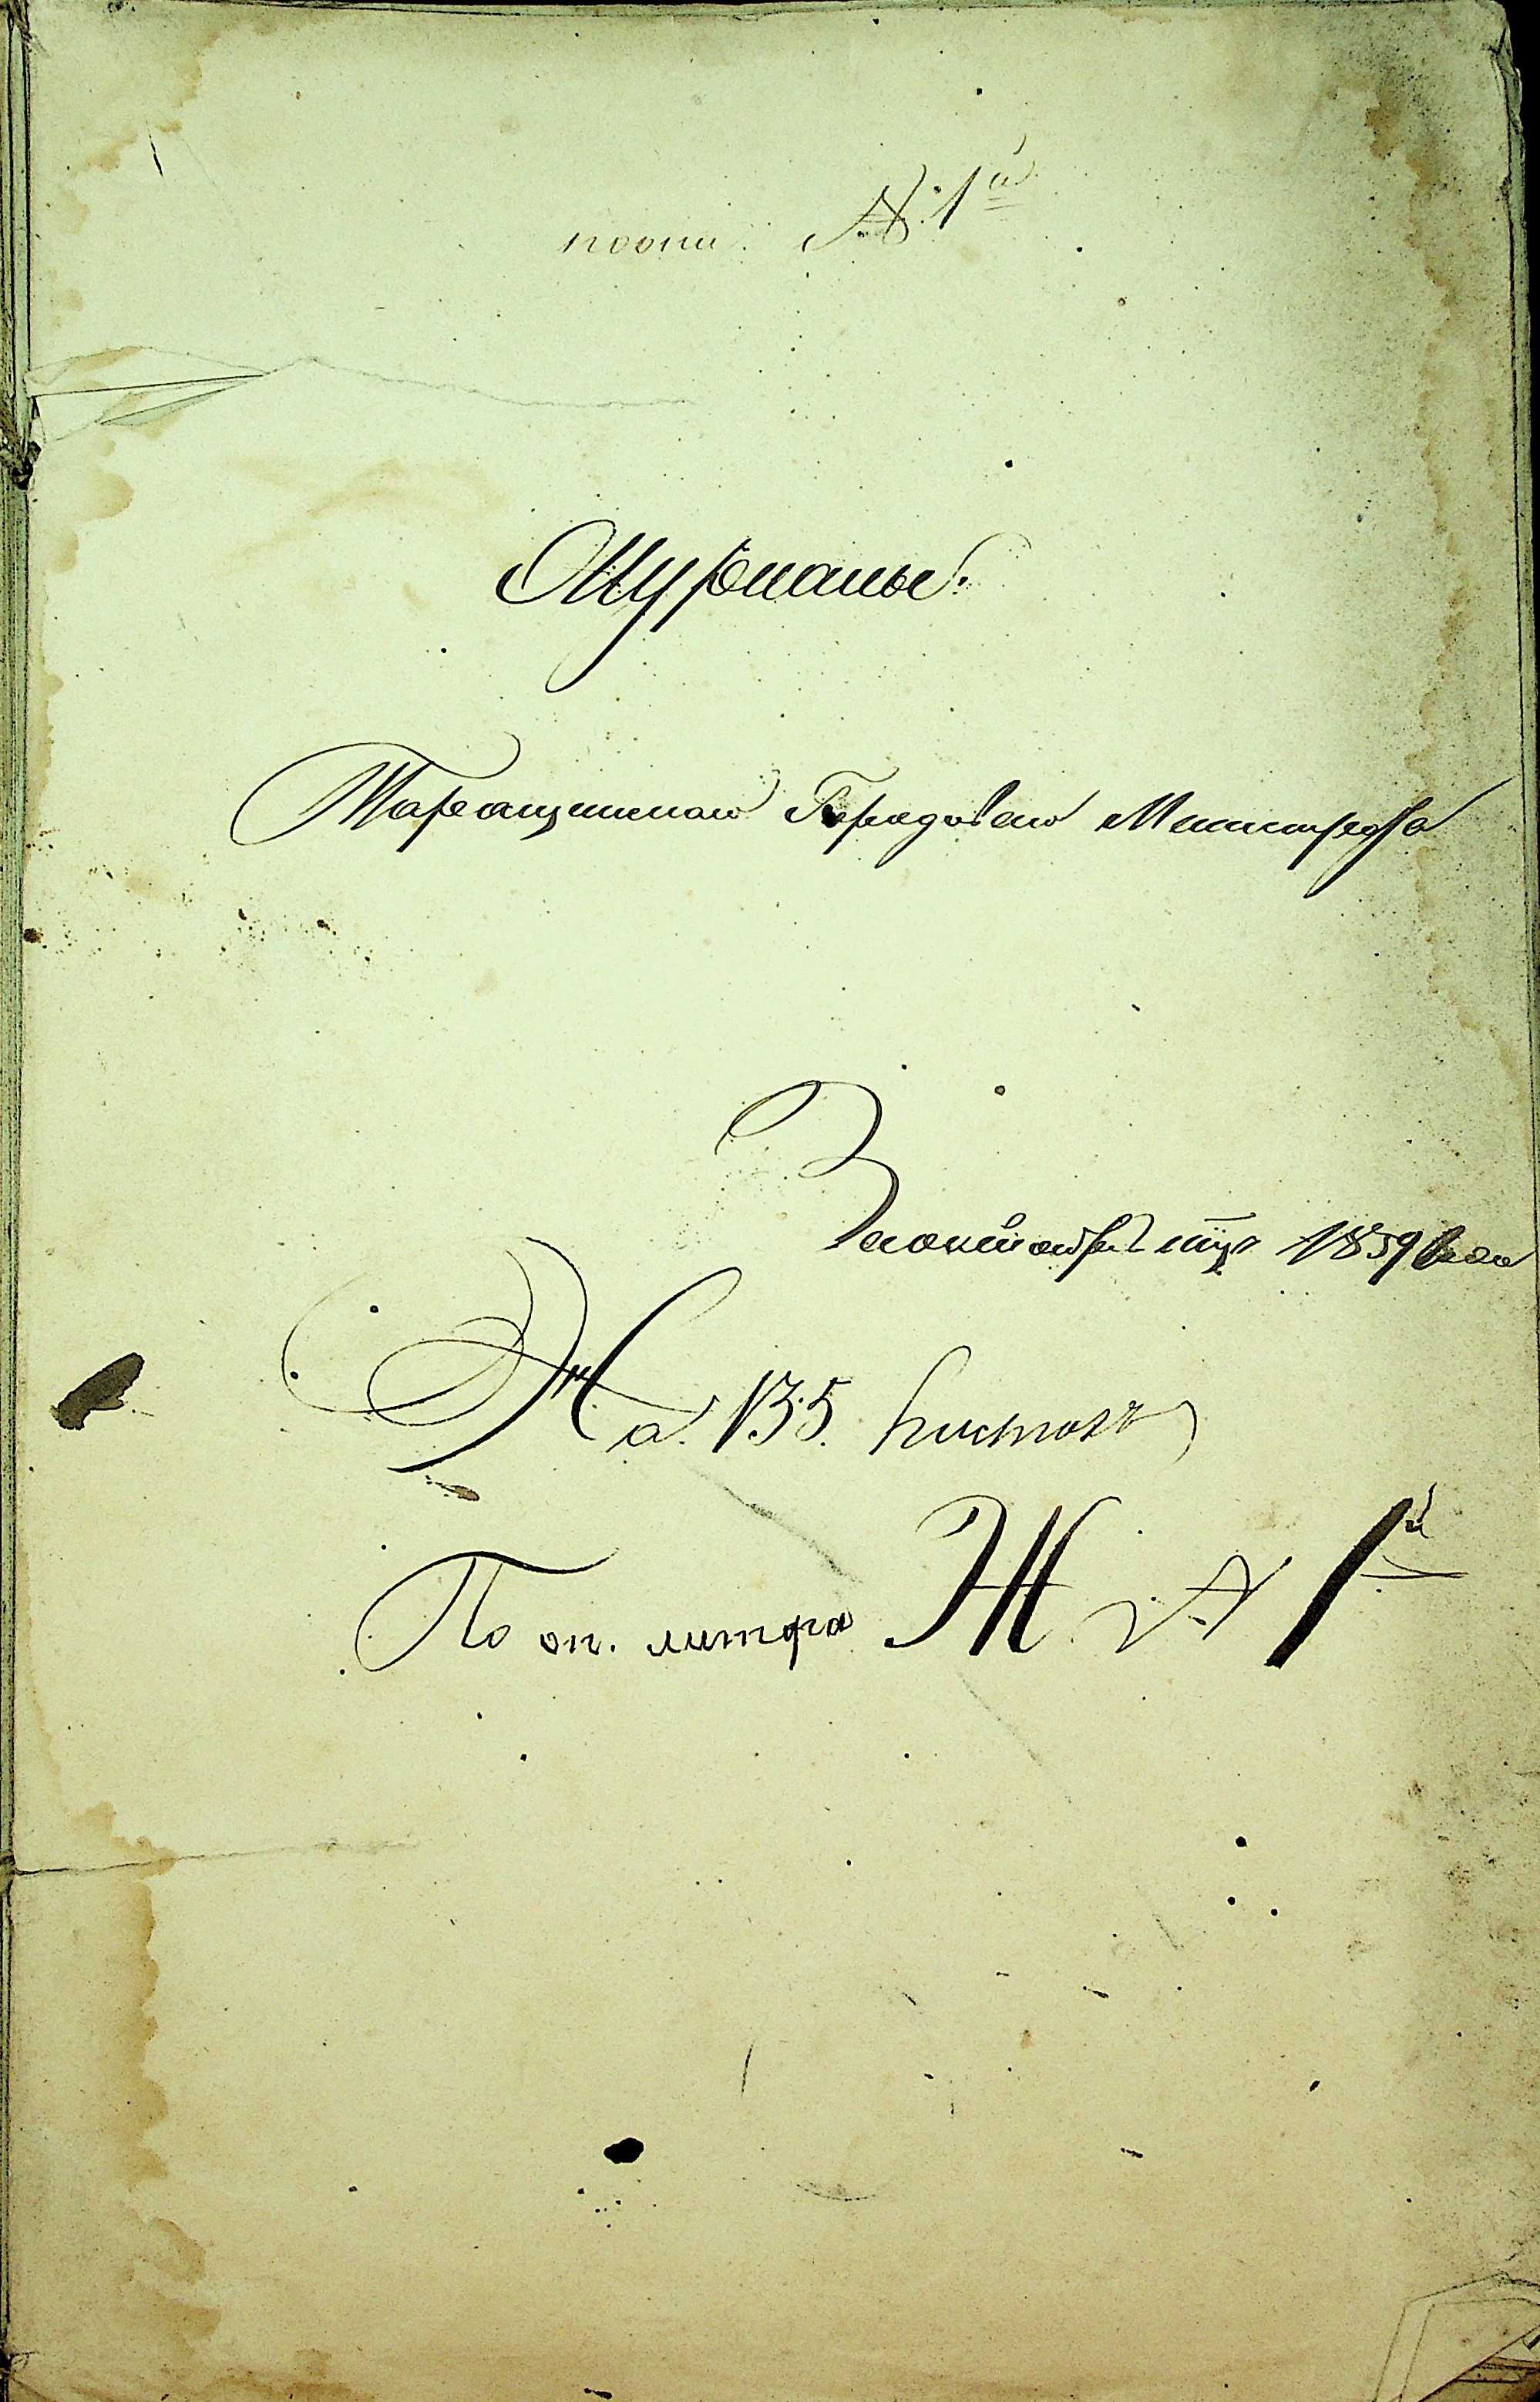 по опи. № 1й
Журналы
Таращанскаго Городоваго Магистрата
За октябрь м-цъ 1839 года
На 135. листахъ
По оп. литера Ж № 1й